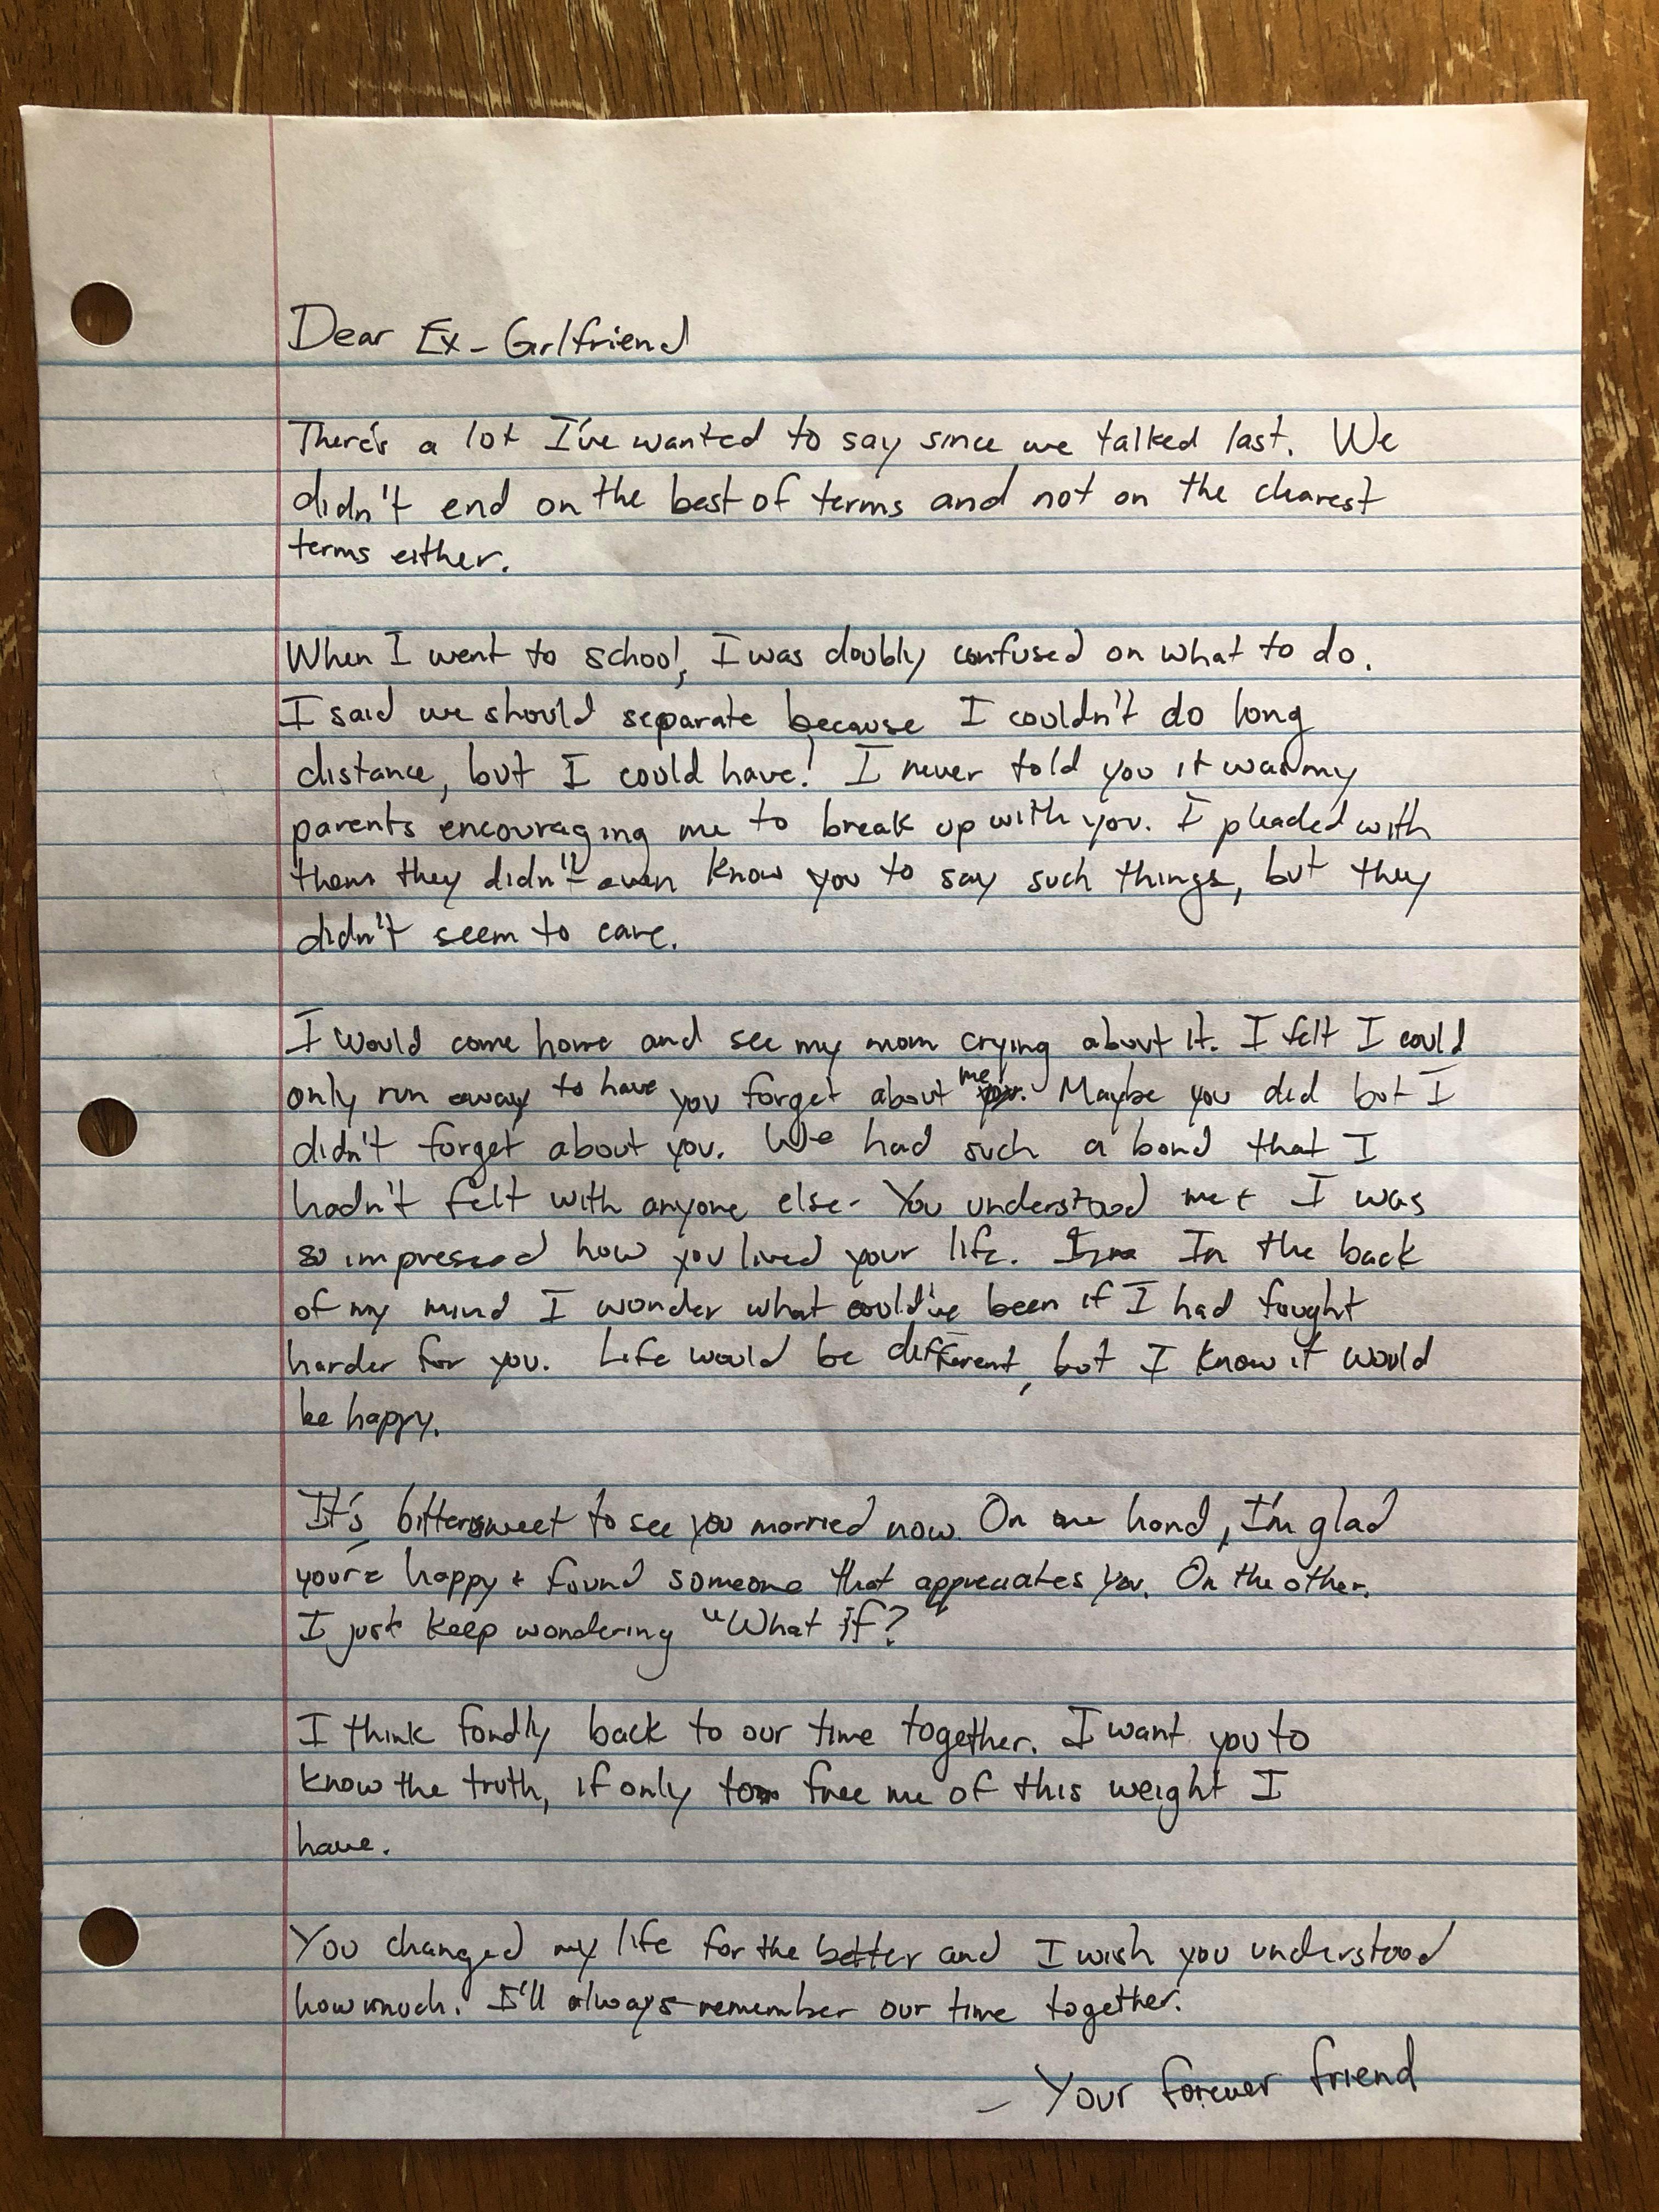 Dear Ex-Girlfriend
There's a lot I've wanted to say since we talked last. We
didn't end on the best of terms and not on the clearest
terms either.
When I went to school, I was doubly confused on what to do.
I said we should separate because I couldn't do long
distance, but I could have! I never told you it was my
parents encouraging me to break up with you. I pleaded with
them they didn't even know you to say such things, but they
didn't seem to care.
I would come home and see my mom crying about it. I felt I could
only run away to have you forget about me. Maybe you did but I
didn't forget about you. We had such a bond that I
hadn't felt with anyone else. You understood me & I was
so impressed how you lived your life. In the back
of my mind I wonder what could've been if I had fought
harder for you. Life would be different, but I know it would
be happy.
It's bittersweet to see you married now. On one hand, I'm glad
you're happy & found someone that appreciates you. On the other,
I just keep wondering "What if?"
I think fondly back to our time together. I want you to
know the truth, if only to free me of this weight I
have.
You changed my life for the better and I wish you understood
how much. I'll always remember our time together.
- Your forever friend